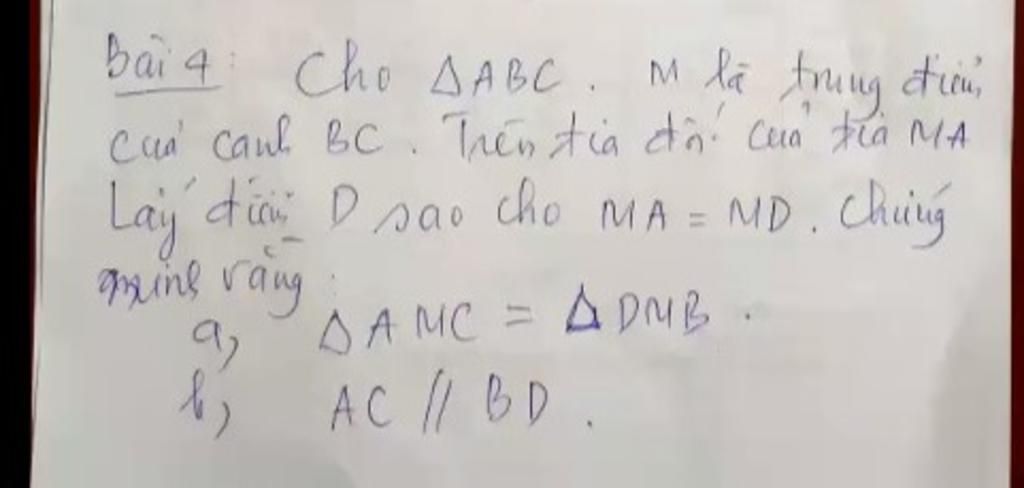 Bài 4: Cho ΔABC. M là trung điểm
của cạnh BC. Trên tia đối của tia MA
Lấy điểm D sao cho MA = MD. Chứng
minh rằng:
a, ΔAMC = ΔDMB.
b, AC // BD.